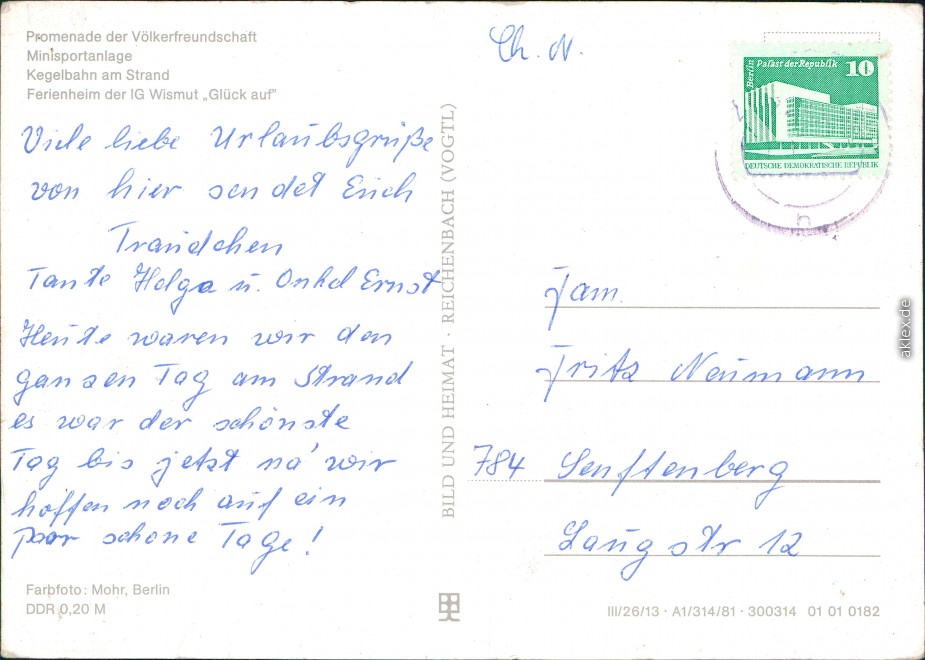 Promenade der Völkerfreundschaft
Minisportanlage
Kegelbahn am Strand
Ferienheim der IG Wismut „Glück auf"
Viele liebe Urlaubsgrüße
von hier sendet Euch
Traudchen
Tante Helga u. Onkel Ernst
Heute waren wir den
ganzen Tag am Strand
es war der schönste
Tag bis jetzt na' wir
hoffen noch auf ein
paar schöne Tage!
Farbfoto: Mohr, Berlin
DDR 0,20 M
BILD UND HEIMAT · REICHENBACH (VOGTL)
Ch. N.
Berlin Palast der Republik 10
DEUTSCHE DEMOKRATISCHE REPUBLIK
Fam.
Fritz Neumann
784 Senftenberg
str 12
III/26/13 · A1/314/81 · 300314 01 01 0182
aklex.de